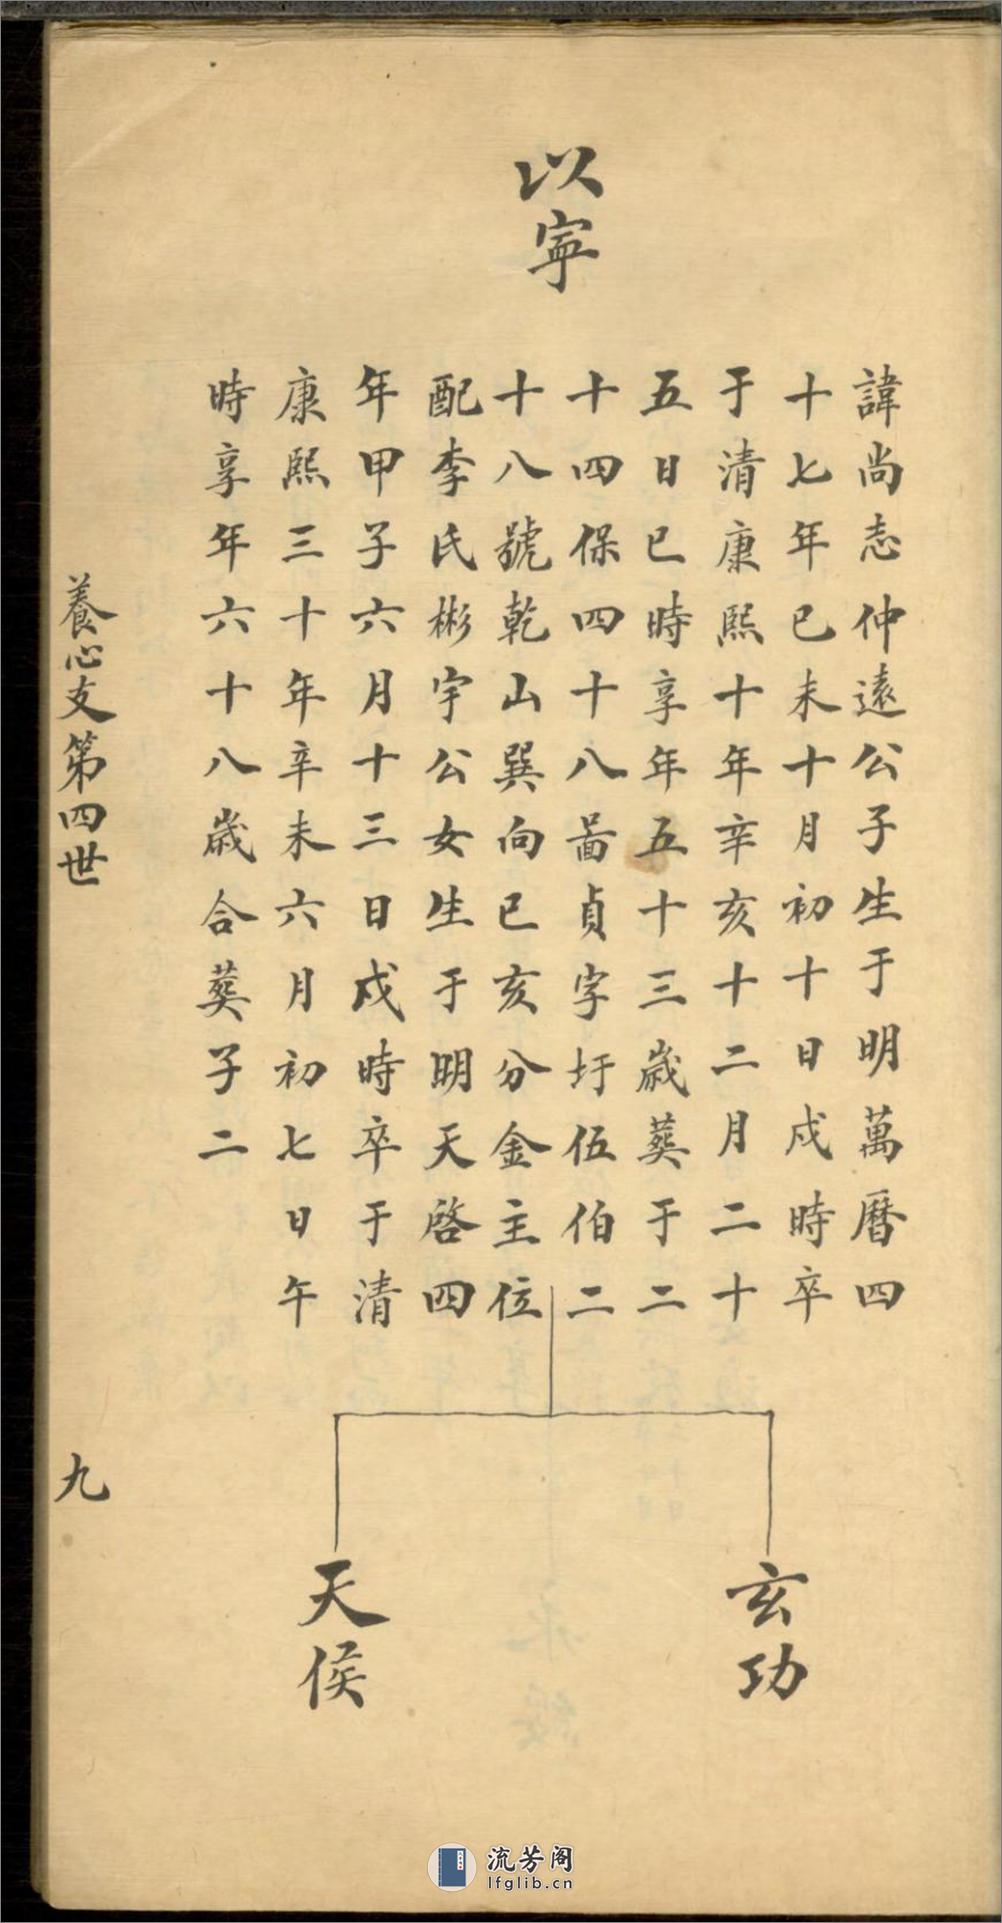 以寧
諱尚志仲遠公子生于明萬曆四
十七年己未十月初十日戌時卒
于清康熙十年辛亥十二月二十
五日巳時享年五十三歲葬于二
十四保四十八啚貞字圩伍伯二
十八號乾山巽向己亥分金主位
配李氏彬宇公女生于明天啓四
年甲子六月十三日戌時卒于清
康熙三十年辛未六月初七日午
時享年六十八歲合葬子二
玄功
天侯
養心支第四世
九
流芳阁
lfglib.cn